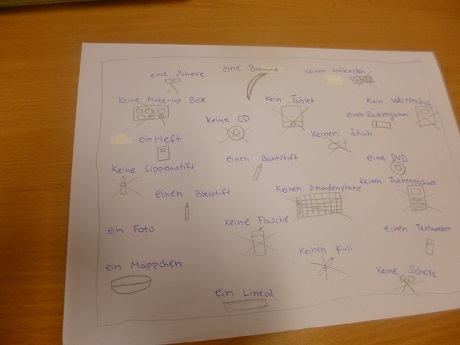 eine Schere
eine Banane
keinen
keine Make-up Box
kein Tablet
kein
keine CD
einen Radiergummi
ein Heft
keinen Schuh
einen Buntstift
eine DVD
keine Lippenstift
keinen Taschenrechner
einen Bleistift
keinen Stundenplane
ein Foto
keine Flasche
einen Textmarker
ein Mäppchen
keinen Kuli
keine Schere
ein Lineal